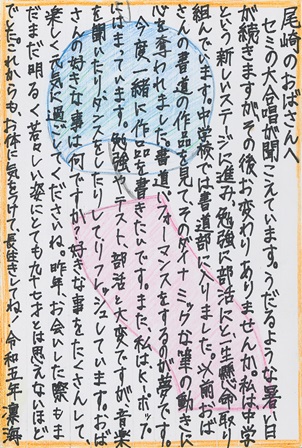 尾崎のおばさんへ
セミの大合唱が聞こえています。うだるような暑い日
が続きますが、その後お変わりありませんか。私は中学
という新しいステージに進み、勉強に部活にと一生懸命取り
組んでいます。中学校では書道部に入りました。以前おば
さんの書道の作品を見て、そのダイナミックな筆の動きに
心を奪われました。書道パフォーマンスをするのが夢です。
今度一緒に作品を書きたいです。また、私はK-ポップ
にはまっています。勉強やテスト、部活と大変ですが、音楽
を聞いたりダンスしたりしてリフレッシュしています。おば
さんの好きな事は何ですか？好きな事をたくさんして、
楽しく元気に過ごしてくださいね。昨年、お会いした際もま
だまだ明るく若々しい姿にとても九十才とは思えないほど
でした。これからも、お体に気をつけて、長生きしてね。令和五年